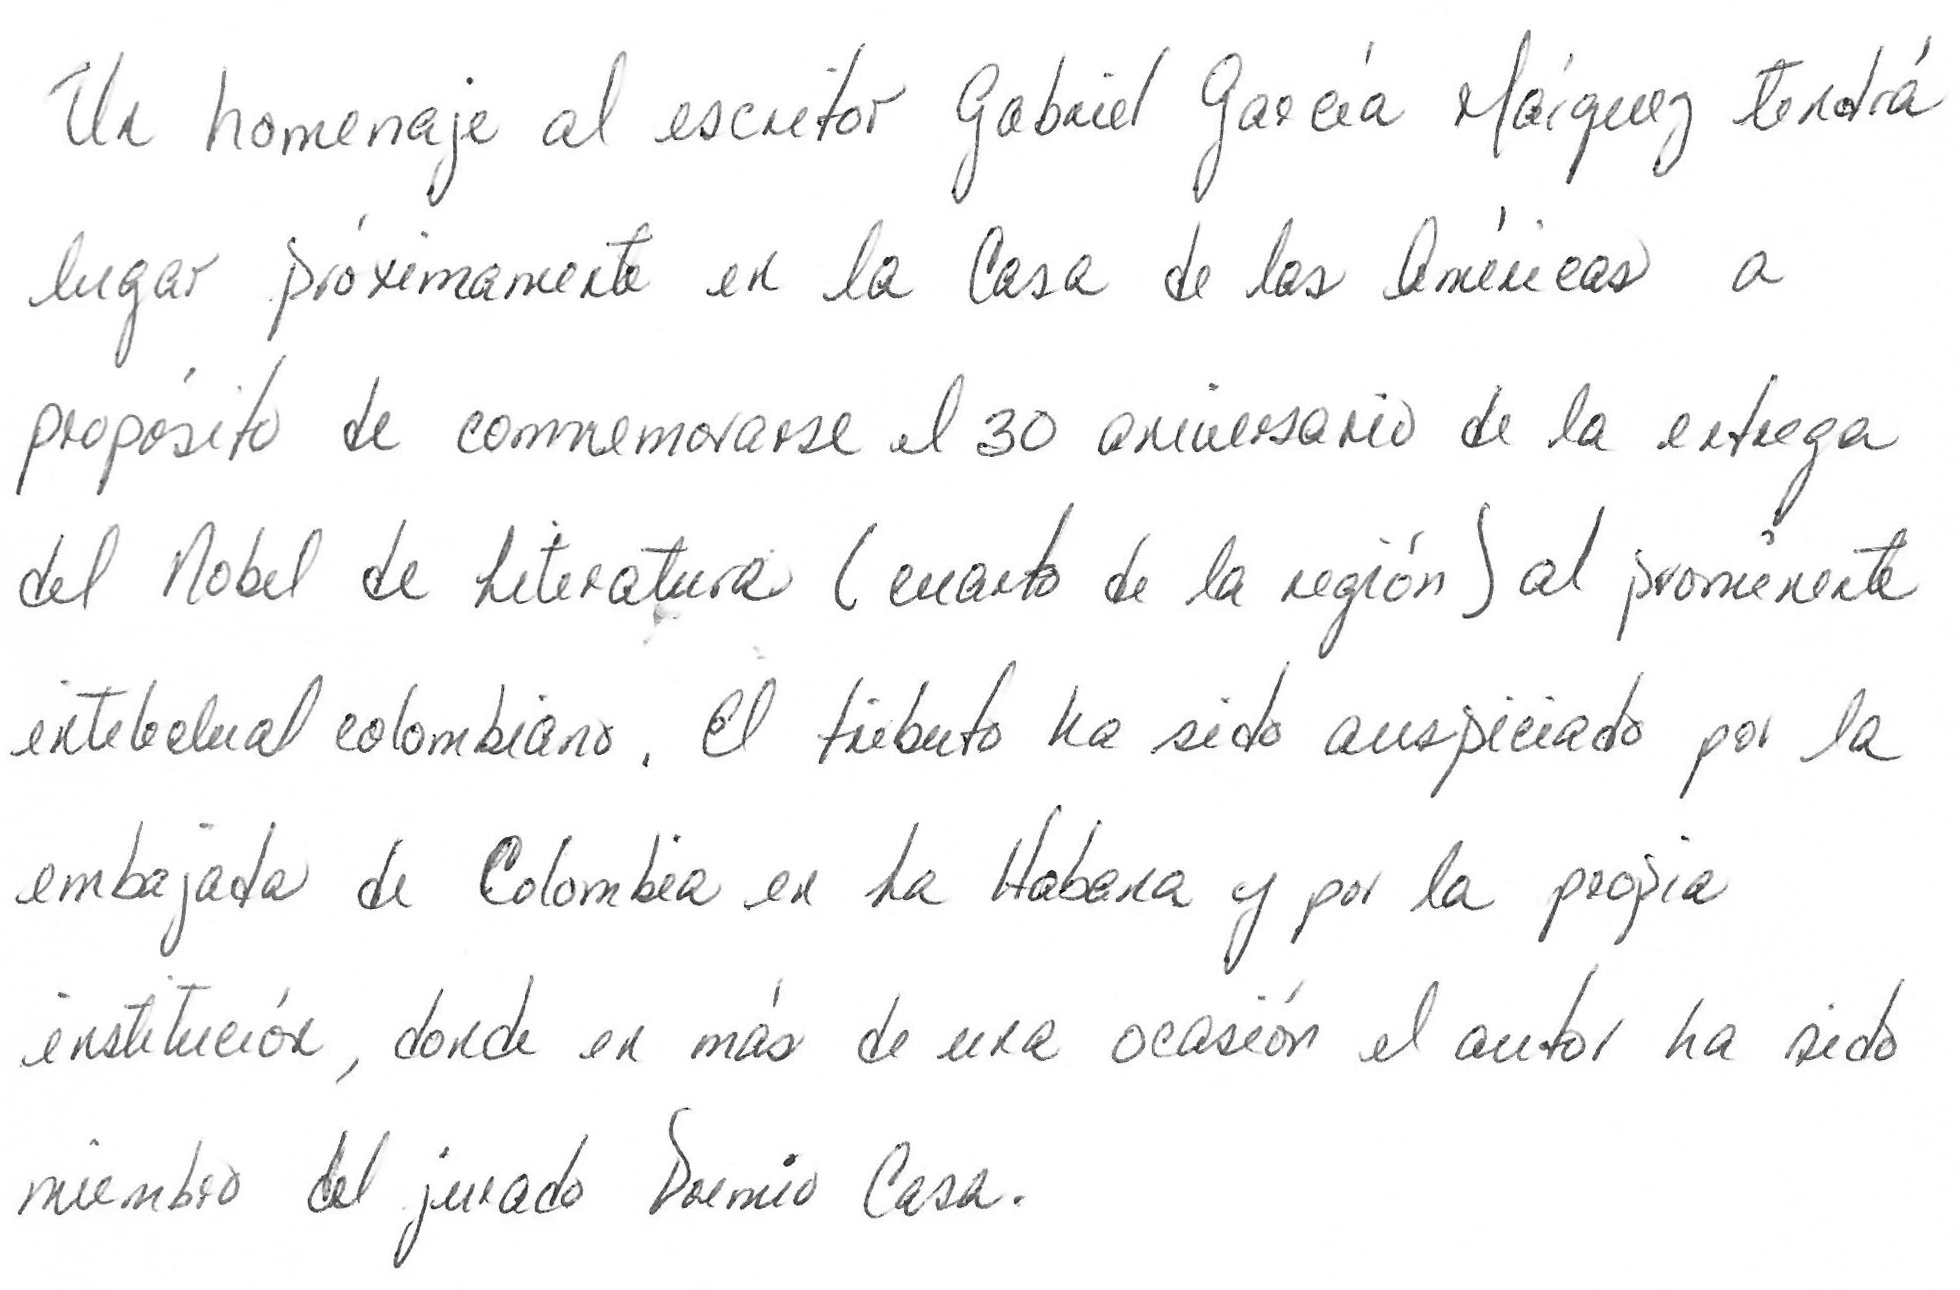 Un homenaje al escritor Gabriel García Márquez tendrá
lugar próximamente en la Casa de las Américas a
propósito de conmemorarse el 30 aniversario de la entrega
del Nobel de Literatura (cuarto de la región) al prominente
intelectual colombiano. El tributo ha sido auspiciado por la
embajada de Colombia en La Habana y por la propia
institución, donde en más de una ocasión el autor ha sido
miembro del jurado Premio Casa.